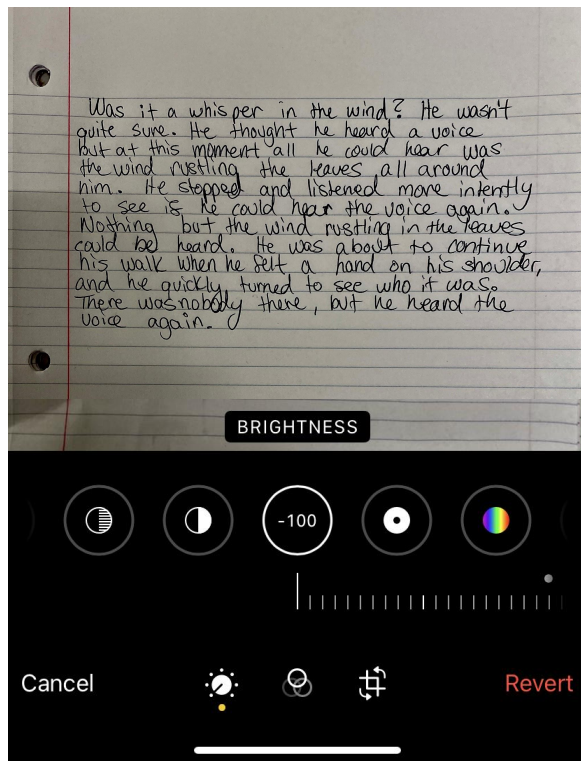 Was it a whisper in the wind? He wasn't
quite sure. He thought he heard a voice
but at this moment all he could hear was
the wind rustling the leaves all around
him. He stopped and listened more intently
to see if he could hear the voice again.
Nothing but the wind rustling in the leaves
could be heard. He was about to continue
his walk when he felt a hand on his shoulder,
and he quickly turned to see who it was.
There was nobody there, but he heard the
voice again.
BRIGHTNESS
-100
Cancel
Revert